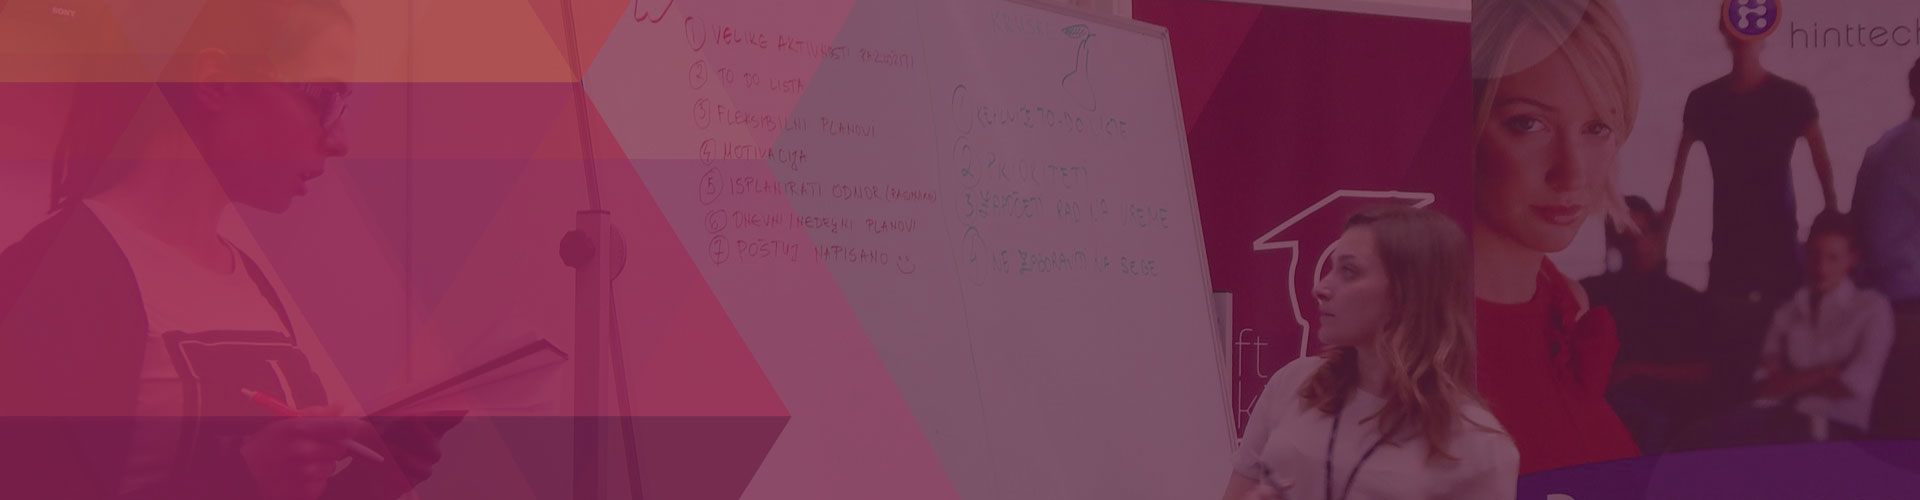 SONY
① VELIKE AKTIVNOSTI RAZLOŽITI
② TO DO LISTA
③ FLEKSIBILNI PLANOVI
④ MOTIVACIJA
⑤ ISPLANIRATI ODMOR
⑥ DNEVNI/NEDEŽNI PLANOVI
⑦ POŠTUJ NAPISANO
KRUŠKE
① TO-DO LISTE
② PRIORITETI
3. RAD NA VREME
④ NE ZABORAVITI NA SEBE
ft
k
hinttech